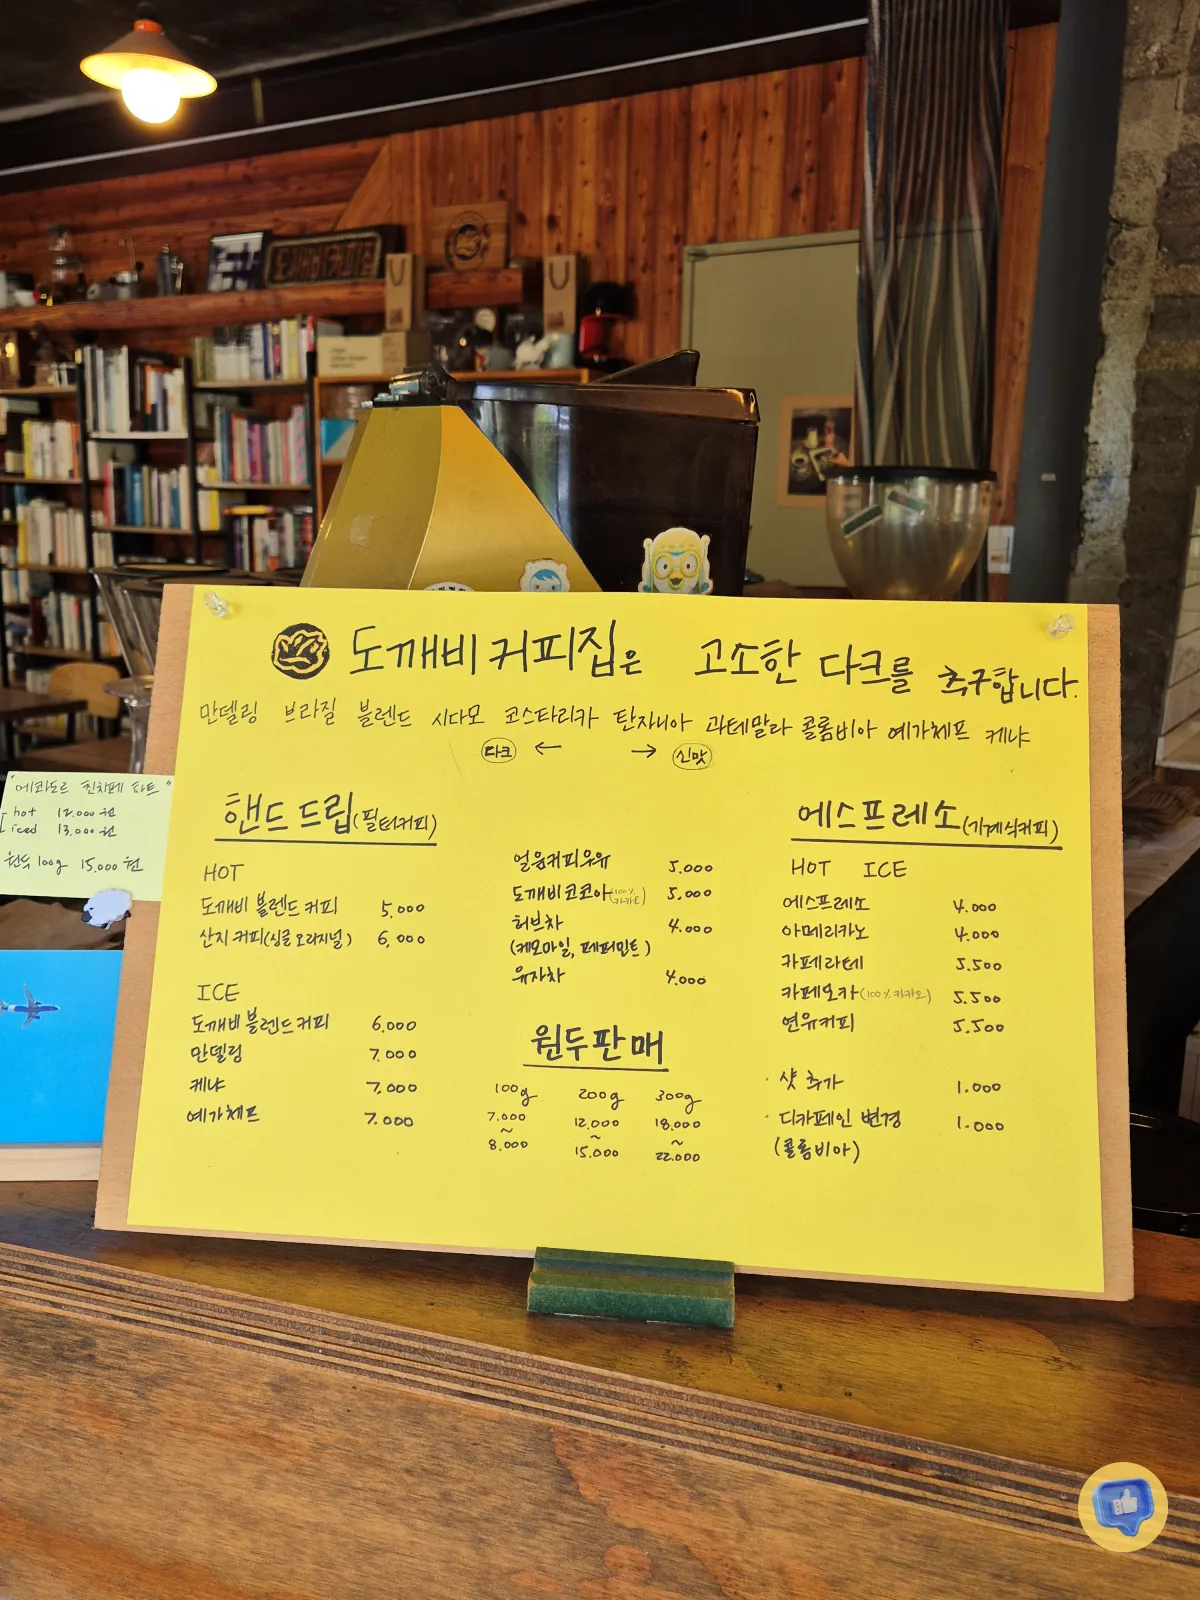 도깨비 커피집은 고소한 다크를 추구합니다.
만델링 브라질 블렌드 시다모 코스타리카 탄자니아 과테말라 콜롬비아 예가체프 케냐
다크 ← → 신맛
핸드 드립(필터커피)
HOT
도깨비 블렌드 커피 5,000
산지 커피(싱글 오리지널) 6,000
ICE
도깨비 블렌드 커피 6,000
만델링 7,000
케냐 7,000
예가체프 7,000
얼음커피우유 5,000
도깨비코코아(100% 카카오) 5,000
허브차 4,000
(케모마일, 페퍼민트)
유자차 4,000
원두판매
100g 200g 300g
7,000 12,000 18,000
~ ~ ~
8,000 15,000 22,000
에스프레소(기계식커피)
HOT ICE
에스프레소 4,000
아메리카노 4,000
카페라테 5,500
카페모카(100% 카카오) 5,500
연유커피 5,500
· 샷 추가 1,000
· 디카페인 변경 1,000
(콜롬비아)
"에콰도르 친차페 파트"
hot 12,000원
iced 13,000원
원두 100g 15,000원
도깨비커피집